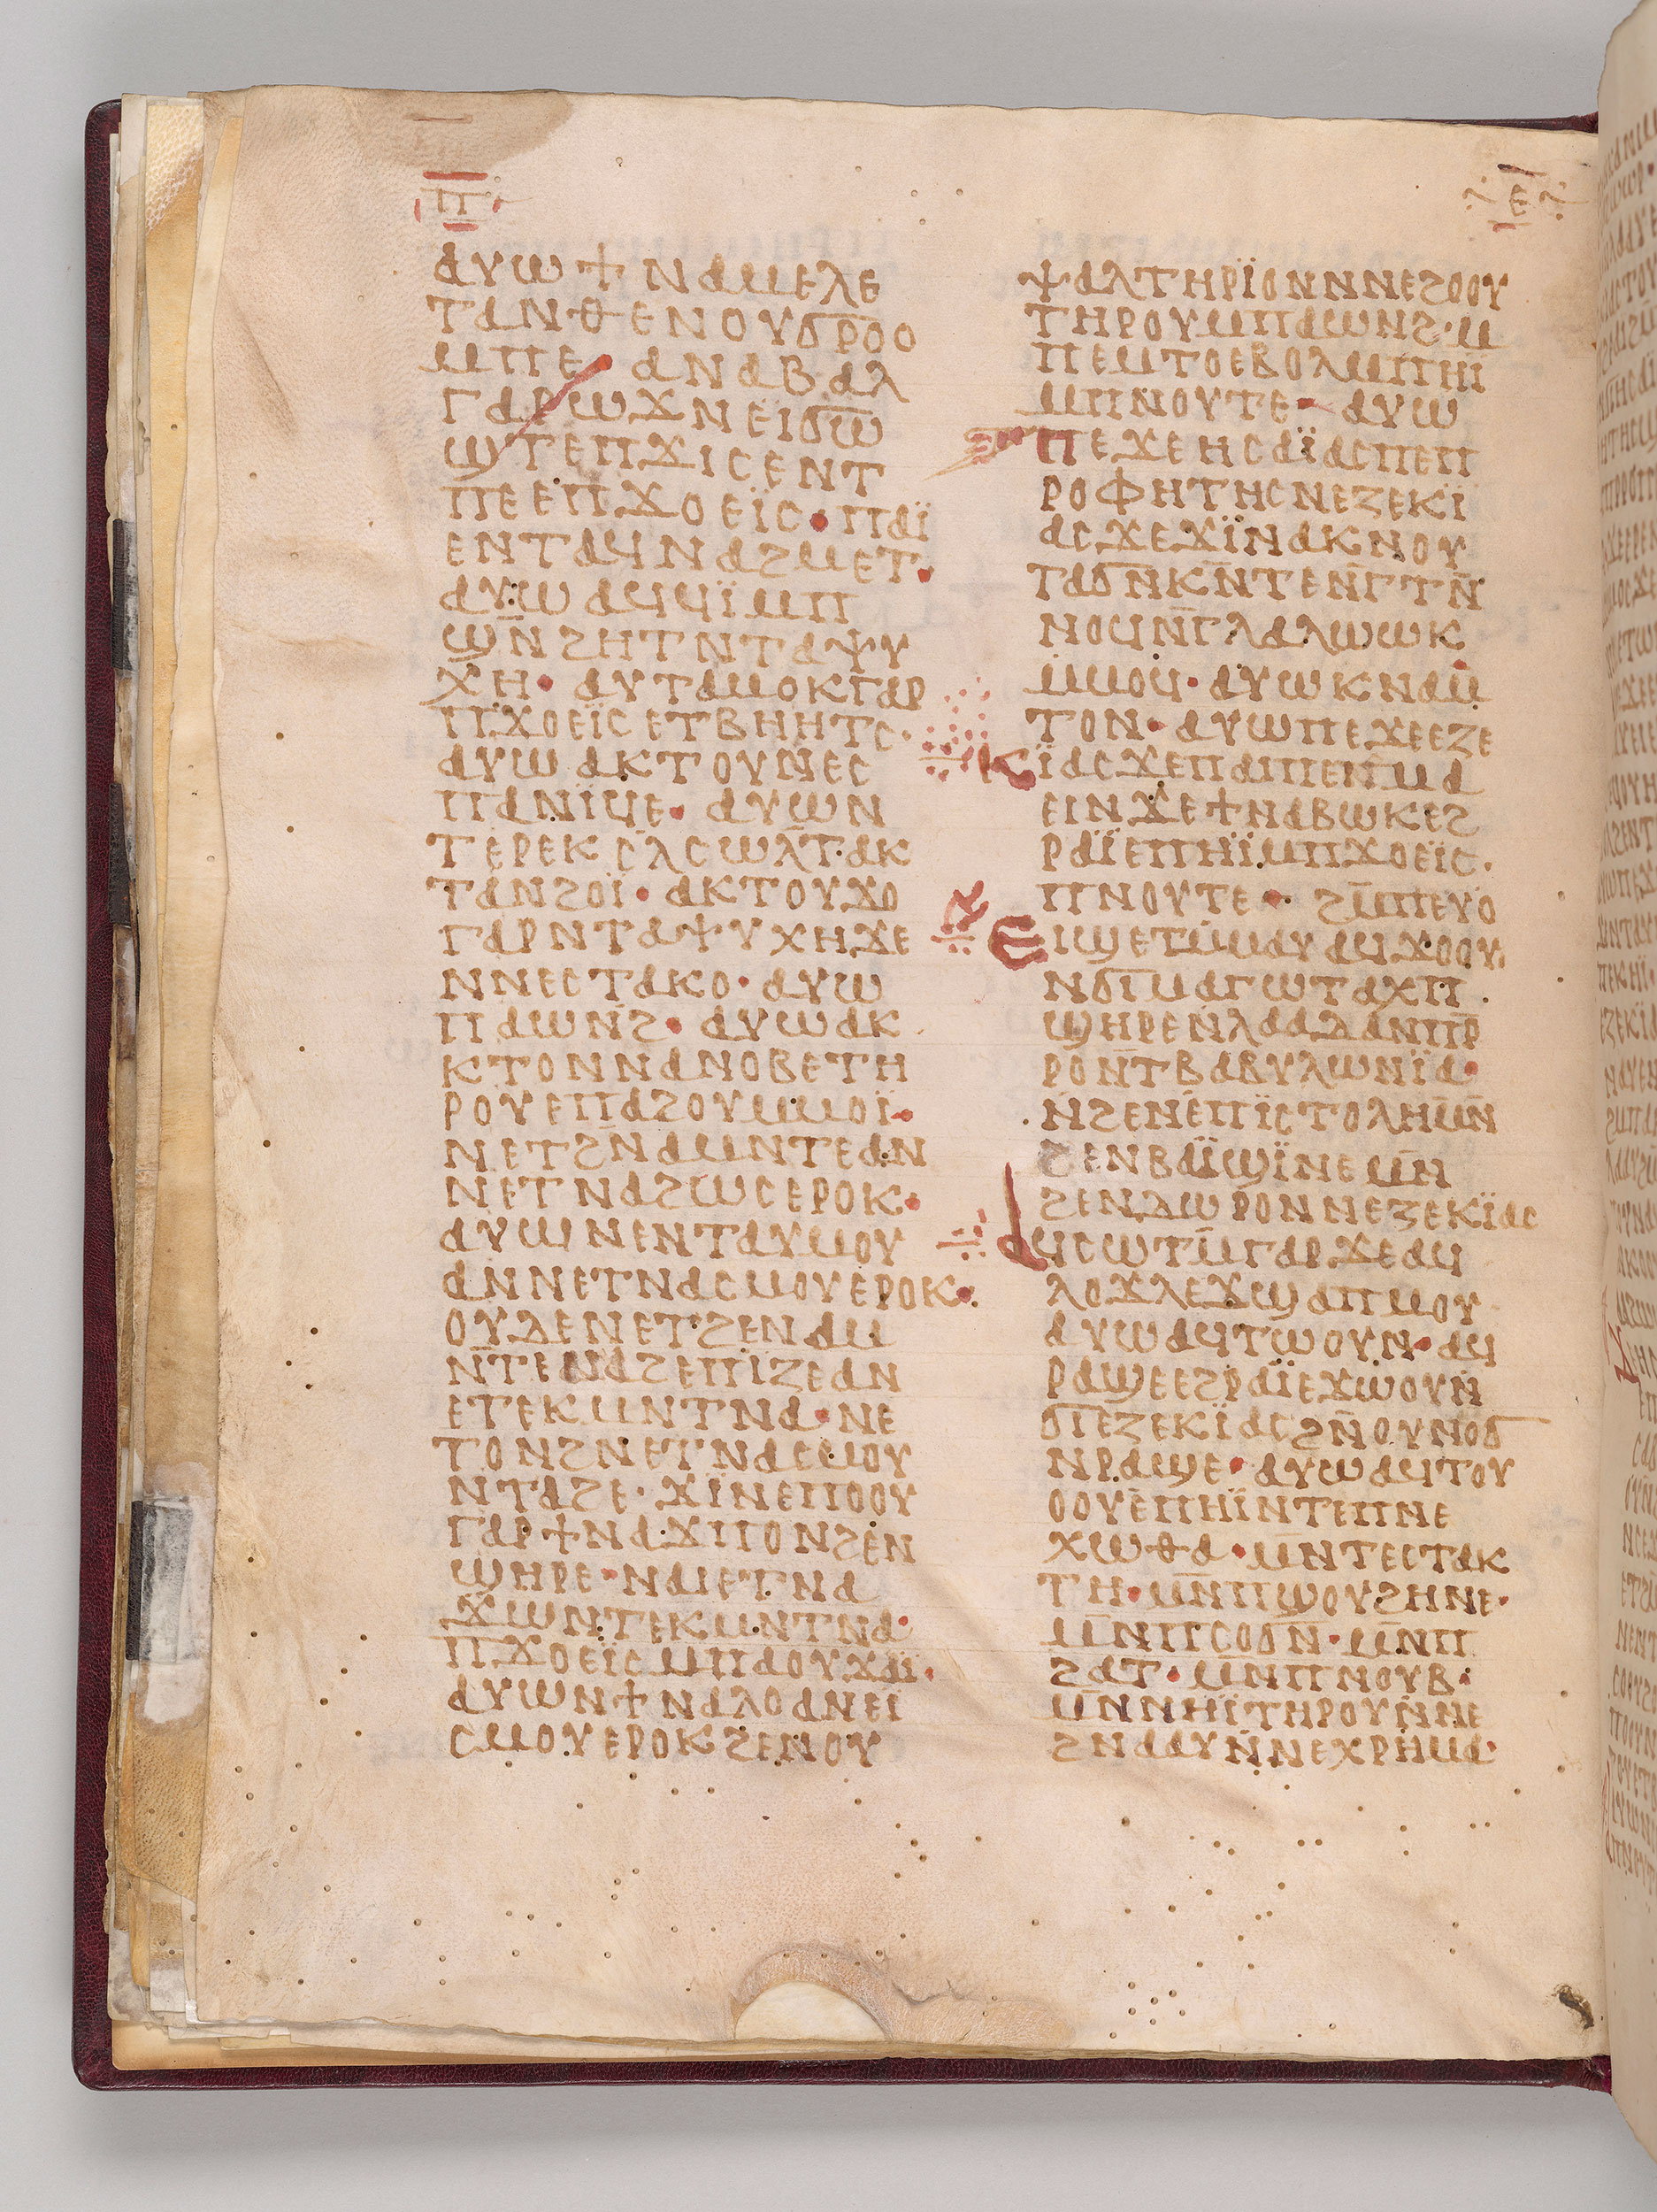 ⲡ̅
ⲉ̅
ⲁⲩⲱ ϯⲛⲁⲙⲉⲗⲉ
ⲧⲁ ⲛⲑⲉ ⲛⲟⲩϭⲣⲟⲟ
ⲙⲡⲉ· ⲁⲛⲁⲃⲁⲗ
ⲅⲁⲣ ⲱϫⲛ ⲉⲓϭⲱ
ϣⲧ ⲉⲡϫⲓⲥⲉ ⲛⲧ
ⲡⲉ ⲉⲡϫⲟⲉⲓ̈ⲥ· ⲡⲁⲓ̈
ⲉⲛⲧⲁϥⲛⲁϩⲙⲉⲧ·
ⲁⲩⲱ ⲁϥϥⲓ̈ ⲙⲡ
ϣⲛ ϩⲏⲧ ⲛⲧⲁⲯⲩ
ⲭⲏ· ⲁⲩⲧⲁⲙⲟⲕ ⲅⲁⲣ
ⲡϫⲟⲉⲓ̈ⲥ ⲉⲧⲃⲏⲏⲧⲥ·
ⲁⲩⲱ ⲁⲕⲧⲟⲩⲛⲉⲥ
ⲡⲁⲛⲓ̈ϥⲉ· ⲁⲩⲱ ⲛ
ⲧⲉⲣⲉⲕⲥⲗⲥⲱⲗⲧ· ⲁⲕ
ⲧⲁⲛϩⲟⲓ̈· ⲁⲕⲧⲟⲩϫⲟ
ⲅⲁⲣ ⲛⲧⲁⲯⲩⲭⲏ ϫⲉ
ⲛⲛⲉⲥⲧⲁⲕⲟ· ⲁⲩⲱ
ⲡⲁⲱⲛϩ· ⲁⲩⲱ ⲁⲕ
ⲕⲧⲟ ⲛⲛⲁⲛⲟⲃⲉ ⲧⲏ
ⲣⲟⲩ ⲉⲡⲁϩⲟⲩ ⲙⲙⲟⲓ̈·
ⲛⲉⲧϩⲛ ⲁⲙⲛⲧⲉ ⲁⲛ
ⲛⲉⲧⲛⲁϩⲱⲥ ⲉⲣⲟⲕ·
ⲁⲩⲱ ⲛⲉⲛⲧⲁⲩⲙⲟⲩ
ⲁⲛ ⲛⲉⲧⲛⲁⲥⲙⲟⲩ ⲉⲣⲟⲕ·
ⲟⲩⲇⲉ ⲛⲉⲧϩⲉⲛ ⲁⲙ
ⲛⲧⲉ ⲛⲁϩⲉⲗⲡⲓⲍⲉ ⲁⲛ
ⲉⲧⲉⲕⲙⲛⲧⲛⲁ· ⲛⲉ
ⲧⲟⲛϩ ⲛⲉⲧⲛⲁⲥⲙⲟⲩ
ⲛⲧⲁϩⲉ· ϫⲓ̈ⲛ ⲉⲡⲟⲟⲩ
ⲅⲁⲣ ϯⲛⲁϫⲡⲟ ⲛϩⲉⲛ
ϣⲏⲣⲉ· ⲛⲁⲓ ⲉⲧⲛⲁ
ϫⲱ ⲛⲧⲉⲕⲙⲛⲧⲛⲁ·
ⲡϫⲟⲉⲓ̈ⲥ ⲙⲡⲁⲟⲩϫⲁⲓ̈·
ⲁⲩⲱ ⲛϯⲛⲁⲗⲟ ⲁⲛ ⲉⲓ
ⲥⲙⲟⲩ ⲉⲣⲟⲕ ϩⲉⲛ ⲟⲩ
ⲯⲁⲗⲧⲏⲣⲓ̈ⲟⲛ ⲛⲛⲉϩⲟⲟⲩ
ⲧⲏⲣⲟⲩ ⲙⲡⲁⲱⲛϩ· ⲙ
ⲡⲉⲙⲧⲟ ⲉⲃⲟⲗ ⲙⲡⲏⲓ̈
ⲙⲡⲛⲟⲩⲧⲉ· ⲁⲩⲱ
ⲡⲉϫⲉ ⲏⲥⲁⲓ̈ⲁⲥ ⲡⲉⲡ
ⲣⲟⲫⲏⲧⲏⲥ ⲛⲉⲍⲉⲕⲓ̈
ⲁⲥ ϫⲉ ϫⲓ̈ ⲛⲁⲕ ⲛⲟⲩ
ⲧⲁϭⲛⲕⲛⲧⲉ ⲛ̅ⲅⲧⲛ̅
ⲛⲟϥ ⲛ̅ⲅⲗⲁⲗⲱⲱⲕ
ⲙⲙⲟϥ· ⲁⲩⲱ ⲕⲛⲁⲙ̅
ⲧⲟⲛ· ⲁⲩⲱ ⲡⲉϫⲉ ⲉⲍⲉ
ⲕⲓ̈ⲁⲥ ϫⲉ ⲡⲁⲓ ⲡⲉ ⲡⲙⲁ
ⲉⲓⲛ ϫⲉ ϯⲛⲁⲃⲱⲕ ⲉϩ
ⲣⲁⲓ̈ ⲉⲡⲏⲓ̈ ⲙⲡϫⲟⲉⲓ̈ⲥ·
ⲡⲛⲟⲩⲧⲉ· ϩⲙ̅ ⲡⲉⲩⲟ
ⲉⲓϣ ⲉⲧⲙ̅ⲙⲁⲩ ⲁϥϫⲟⲟⲩ
ⲛϭⲓ ⲙⲁⲣⲱⲧⲁⲭ ⲡ
ϣⲏⲣⲉ ⲛⲗⲁⲁⲇⲁⲛ ⲡⲣ̅
ⲣⲟ ⲛ̅ⲧⲃⲁⲃⲩⲗⲱⲛⲓ̈ⲁ·
ⲛ̅ϩⲉⲛⲉⲡⲓ̈ⲥⲧⲟⲗⲏ ⲙⲛ̅
ϩⲉⲛⲃⲁⲓ̈ϣⲓ̈ⲛⲉ ⲙⲛ̅
ϩⲉⲛⲇⲱⲣⲟⲛ ⲛⲉⲍⲉⲕⲓ̈ⲁⲥ
ⲁϥⲥⲱⲧⲙ̅ ⲅⲁⲣ ϫⲉ ⲁϥ
ⲗⲟϫⲗⲉϫ ϣⲁ ⲡⲙⲟⲩ
ⲁⲩⲱ ⲁϥⲧⲱⲟⲩⲛ· ⲁϥ
ⲣⲁϣⲉ ⲉϩⲣⲁⲓ̈ ⲉϫⲱⲟⲩ ⲛ̅
ϭⲓ ⲉⲍⲉⲕⲓ̈ⲁⲥ ϩⲛ̅ ⲟⲩⲛⲟϭ
ⲛⲣⲁϣⲉ· ⲁⲩⲱ ⲁϥⲧⲟⲩ
ⲟⲟⲩ ⲉⲡⲏⲓ̈ ⲛⲧⲉ ⲡⲛⲉ
ⲭⲱⲑⲁ· ⲙⲛ ⲧⲉⲥⲧⲁⲕ
ⲧⲏ· ⲙⲛ̅ ⲡϣⲟⲩϩⲏⲛⲉ·
ⲙⲛ̅ ⲡⲥⲟϭⲛ· ⲙⲛ̅ ⲡ
ϩⲁⲧ· ⲙⲛ̅ ⲡⲛⲟⲩⲃ·
ⲙⲛ̅ ⲛⲏⲓ̈ ⲧⲏⲣⲟⲩ ⲛ̅ⲛⲉ
ϩⲛⲁⲁⲩ ⲛ̅ⲛⲉⲭⲣⲏⲙⲁ·